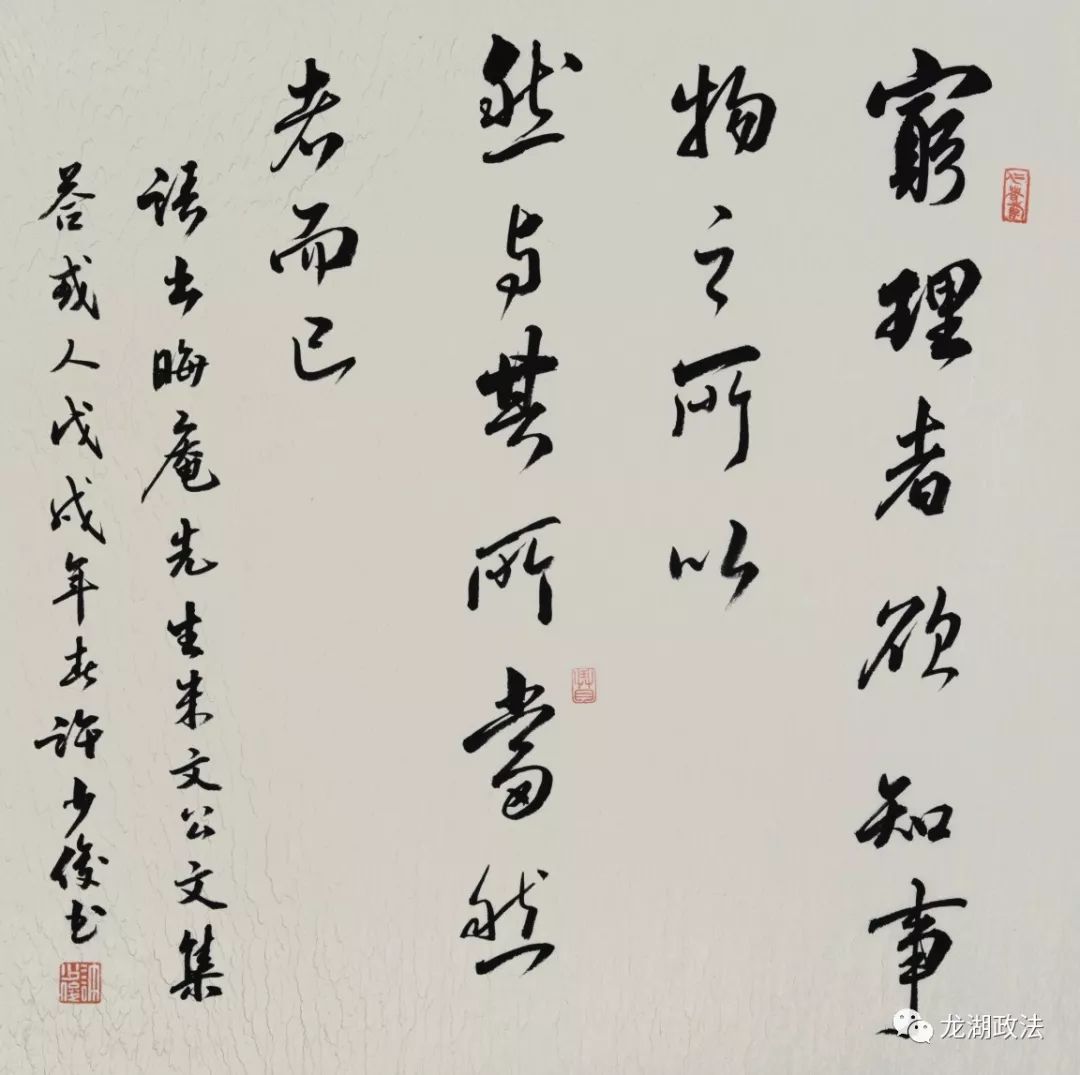 窮理者欲知事
物之所以
然与其所當然
者而已
語出晦庵先生朱文公文集
答或人戊戌年春許少俊书
許少俊
龙湖政法